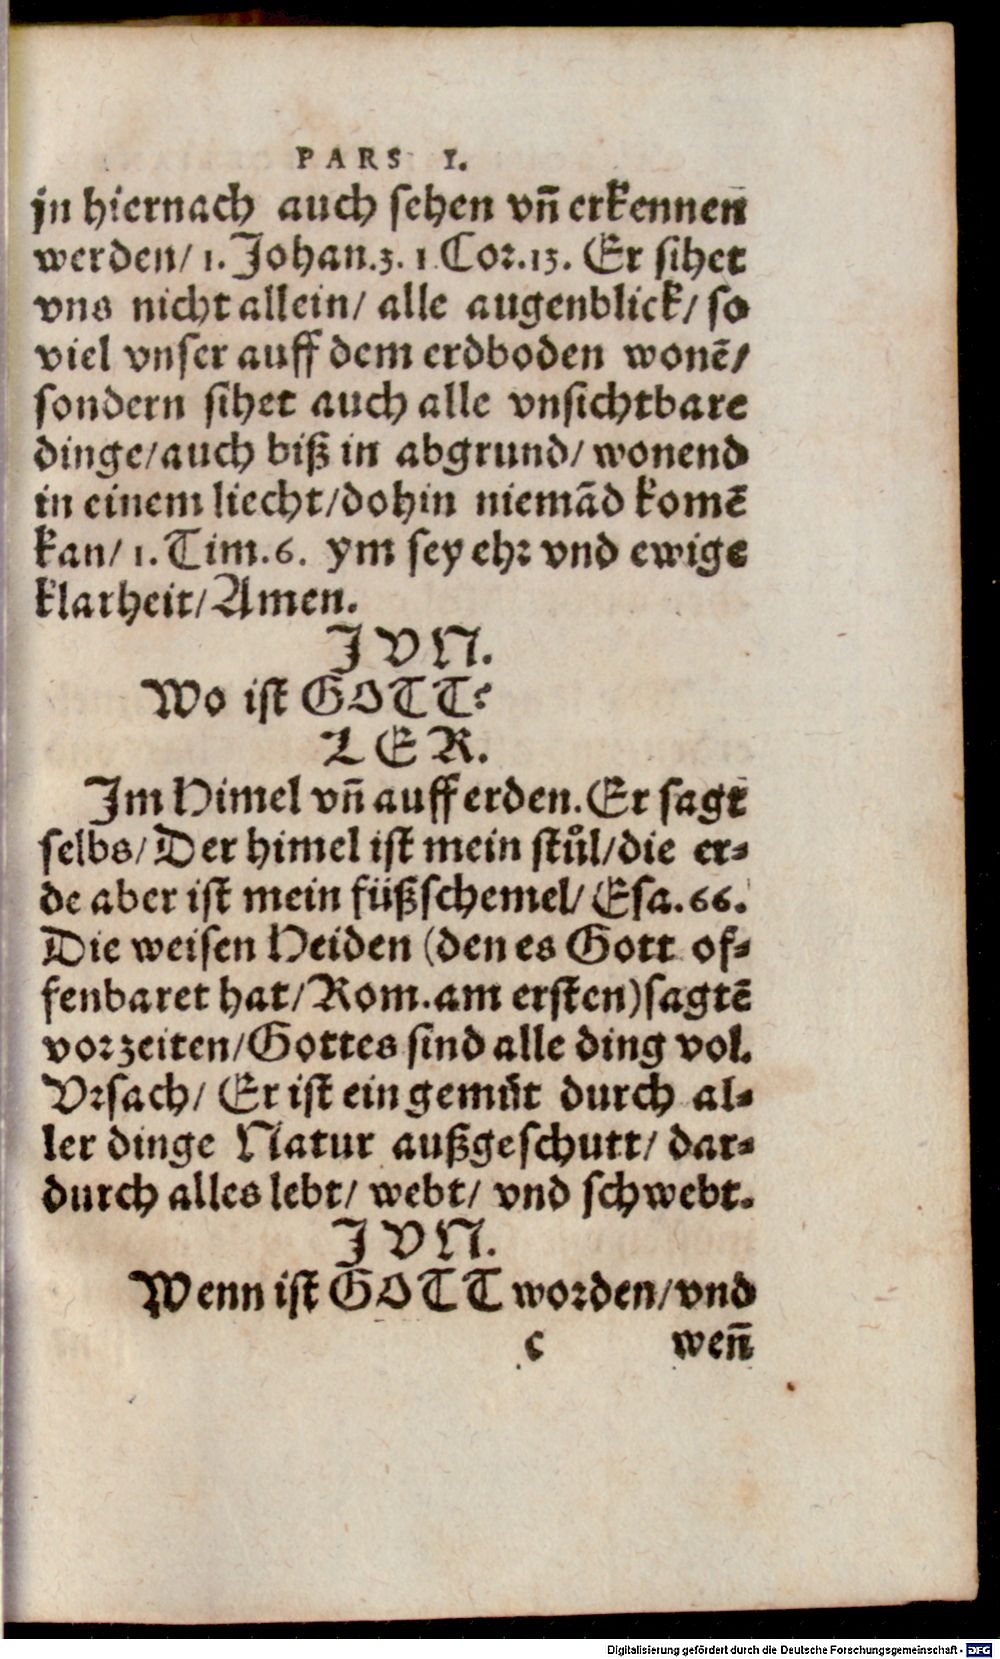 PARS I.
jn hiernach auch sehen vñ erkennen
werden/ 1. Johan.3. 1 Cor.13. Er sihet
vns nicht allein/ alle augenblick/ so
viel vnser auff dem erdboden wonē/
sondern sihet auch alle vnsichtbare
dinge/auch biß in abgrund/ wonend
in einem liecht/dohin niemād komē
kan/ 1. Tim.6. ym sey ehr vnd ewige
klarheit/Amen.
JVN.
Wo ist GOTT?
LER.
Im Himel vñ auff erden. Er sagt
selbs/ Der himel ist mein stůl/die er-
de aber ist mein füßschemel/ Esa.66.
Die weisen Heiden (den es Gott of-
fenbaret hat/Rom.am ersten)sagtē
vorzeiten/Gottes sind alle ding vol.
Vrsach/ Er ist ein gemüt durch al-
ler dinge Natur außgeschutt/ dar-
durch alles lebt/ webt/ vnd schwebt.
JVN.
Wenn ist GOTT worden/vnd
c weñ
Digitalisierung gefördert durch die Deutsche Forschungsgemeinschaft - DFG